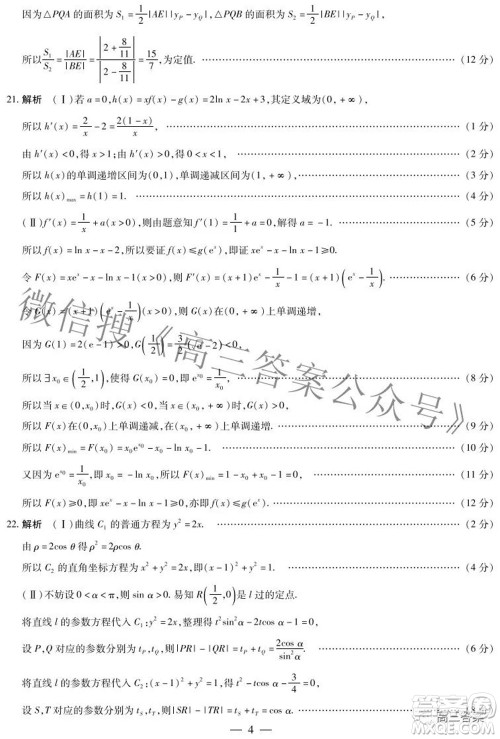 因为△PQA 的面积为 S₁ = 1/2 |AE||y_P - y_Q|, △PQB 的面积为 S₂ = 1/2 |BE||y_P - y_Q|,
所以 S₁/S₂ = |AE|/|BE| = |2 + 8/11| / |2 - 8/11| = 15/7, 为定值. (12 分)
21. 解析 (Ⅰ) 若 a = 0, h(x) = xf(x) - g(x) = 2ln x - 2x + 3, 其定义域为 (0, +∞),
所以 h′(x) = 2/x - 2 = 2(1-x)/x, (1 分)
由 h′(x) < 0, 得 x > 1; 由 h′(x) > 0, 得 0 < x < 1, (2 分)
所以 h(x) 的单调递增区间为 (0,1), 单调递减区间为 (1, +∞), (3 分)
所以 h(x)max = h(1) = 1. (4 分)
(Ⅱ) f′(x) = 1/x + a(x>0), 则由题意知 f′(1) = 1/1 + a = 0, 解得 a = -1. (5 分)
所以 f(x) = ln x - x - 2, 所以要证 f(x) ≤ g(eˣ), 即证 xeˣ - x - ln x - 1 ≥ 0.
令 F(x) = xeˣ - x - ln x - 1(x>0), 则 F′(x) = (x+1)eˣ - 1/x - 1 = (x+1)(eˣ - 1/x). (6 分)
令 G(x) = (x+1)(eˣ - 1/x), 易知 G(x) 在 (0, +∞) 上单调递增,
因为 G(1) = 2(e-1) > 0, G(1/2) = 3/2(√e - 2) < 0,
所以 ∃x₀∈(1/2, 1), 使得 G(x₀) = 0, 即 e^x₀ = 1/x₀, (8 分)
所以当 x∈(0, x₀) 时, G(x) < 0, 当 x∈(x₀, +∞) 时, G(x) > 0,
所以 F(x) 在 (0, x₀) 上单调递减, 在 (x₀, +∞) 上单调递增. (9 分)
所以 F(x)min = F(x₀) = x₀e^x₀ - x₀ - ln x₀ - 1. (10 分)
又因为 e^x₀ = 1/x₀, 即 x₀ = -ln x₀, 所以 F(x)min = 1 - x₀ + x₀ - 1 = 0, (11 分)
所以 F(x) ≥ 0, 即 xeˣ - x - ln x - 1 ≥ 0, 亦即 f(x) ≤ g(eˣ). (12 分)
22. 解析 (Ⅰ) 曲线 C₁ 的普通方程为 y² = 2x. (2 分)
由 ρ = 2cos θ 得 ρ² = 2ρcos θ,
所以 C₂ 的直角坐标方程为 x² + y² = 2x, 即 (x-1)² + y² = 1. (4 分)
(Ⅱ) 不妨设 0 < α < π, 则 sin α > 0. 易知 R(1/2, 0) 是 l 过的定点.
将直线 l 的参数方程代入 C₁: y² = 2x, 整理得 t²sin²α - 2tcos α - 1 = 0,
设 P, Q 对应的参数分别为 t_P, t_Q, 则 |PR| - |QR| = t_P + t_Q = 2cos α/sin²α. (6 分)
将直线 l 的参数方程代入 C₂: (x-1)² + y² = 1, 得 t² - tcos α - 3/4 = 0,
设 S, T 对应的参数分别为 t_S, t_T, 则 |SR| - |TR| = t_S + t_T = cos α.
— 4 —
微信搜《高三答案公众号》
高三答案